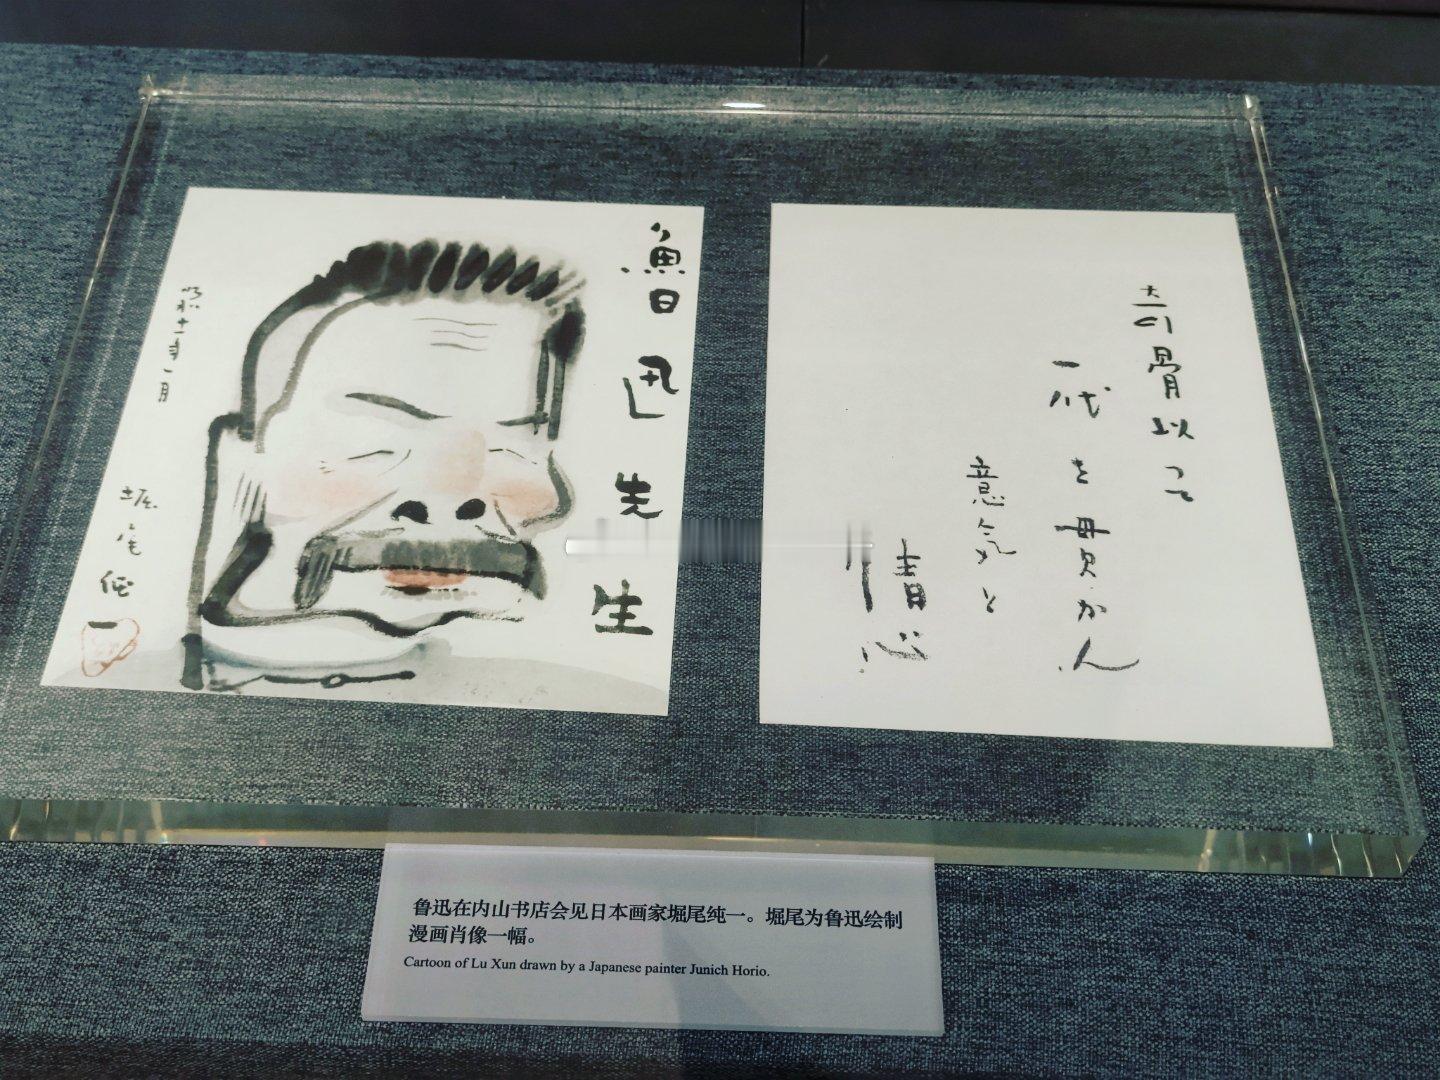 魯迅先生
昭十一年一月
堀尾純一
奇骨以て
一代を貫かん
意気と
情心
鲁迅在内山书店会见日本画家堀尾纯一。堀尾为鲁迅绘制
漫画肖像一幅。
Cartoon of Lu Xun drawn by a Japanese painter Junich Horio.